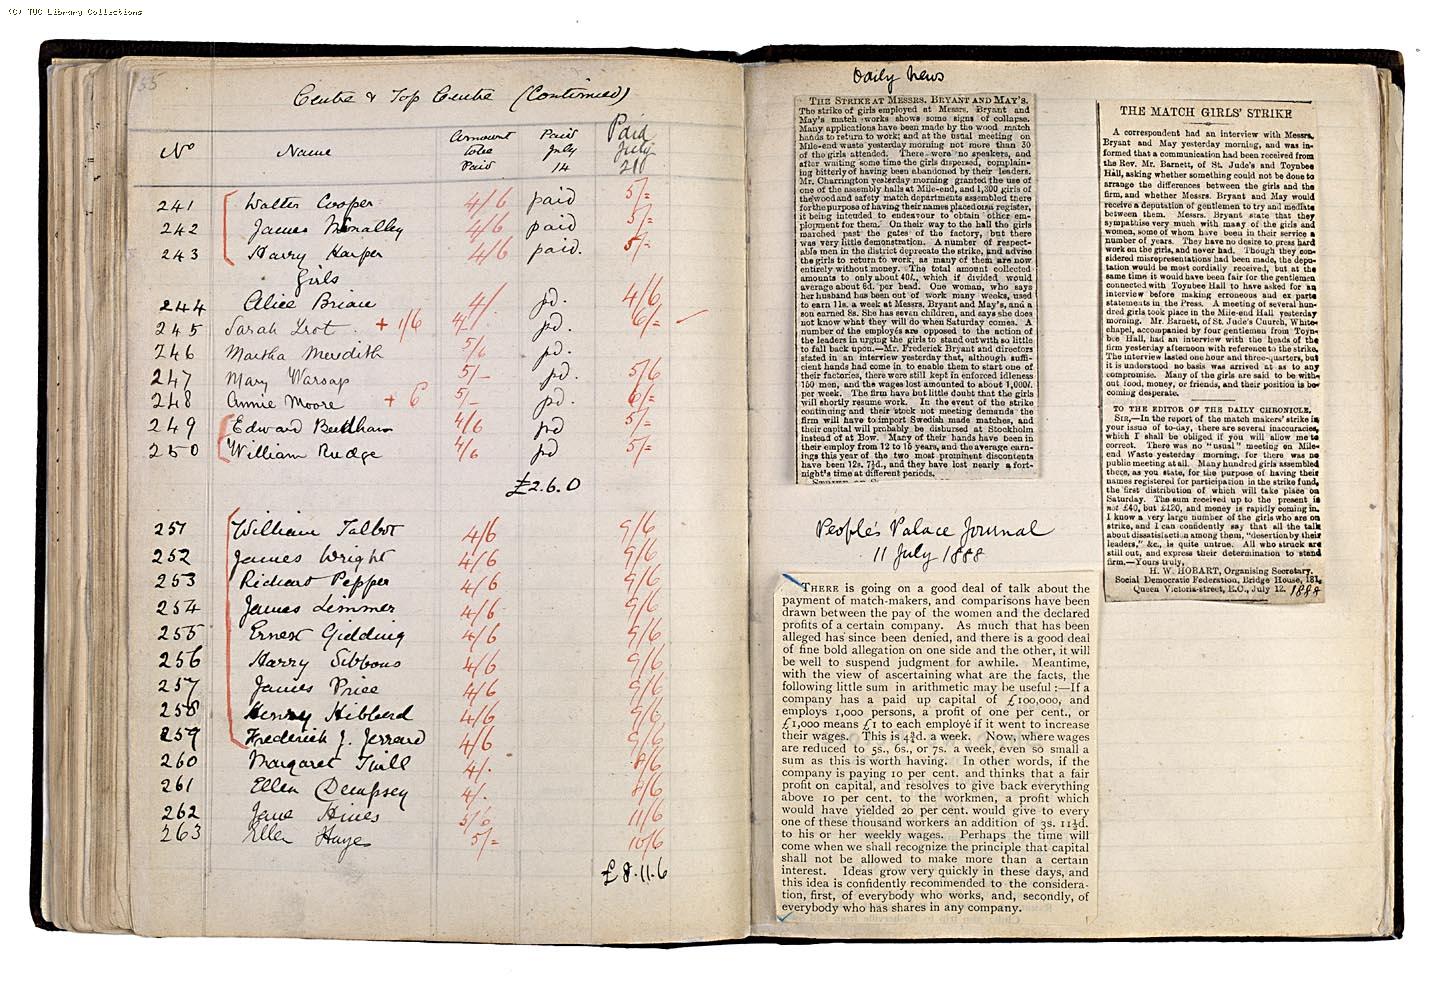 (C) TUC Library Collections
155
Centre & Top Centre (Continued)
No Name Amount to be Paid Paid July 14 Paid July 21
241 Walter Cooper 4/6 paid 5/=
242 James 4/6 paid 5/=
243 Harry Harper 4/6 paid. 5/=
Girls
244 Alice Brian 4/. pd. 4/6
245 Sarah Trot. + 1/6 4/. pd. 6/=
246 Martha Meredith 5/6 pd.
247 Mary Warsap 5/- pd. 5/6
248 Annie Moore + 6 5/- pd. 6/=
249 Edward 4/6 pd 5/=
250 William Rudge 4/6 pd 5/=
£2.6.0
251 William Talbot 4/6 9/6
252 James Wright 4/6 9/6
253 Richard Pepper 4/6 9/6
254 James Limmer 4/6 9/6
255 Ernest Gidding 4/6 9/6
256 Harry Gibbons 4/6 9/6
257 James Price 4/6 9/6
258 Henry Hibberd 4/6 9/6
259 Frederick J. Jerrard 4/6 9/6
260 Margaret 4/. 8/6
261 Ellen Dempsey 4/. 8/6
262 Jane Hines 5/6 11/6
263 Ellen Hayes 5/= 10/6
£8.11.6
Daily News
THE STRIKE AT MESSRS. BRYANT AND MAY'S.
The strike of girls employed at Messrs. Bryant and
May's match works shows some signs of collapse.
Many applications have been made by the wood match
hands to return to work; and at the usual meeting on
Mile-end waste yesterday morning not more than 30
of the girls attended. There were no speakers, and
after waiting some time the girls dispersed, complain-
ing bitterly of having been abandoned by their leaders.
Mr. Charrington yesterday morning granted the use of
one of the assembly halls at Mile-end, and 1,300 girls of
the wood and safety match departments assembled there
for the purpose of having their names placed on a register,
it being intended to endeavour to obtain other em-
ployment for them. On their way to the hall the girls
marched past the gates of the factory, but there
was very little demonstration. A number of respect-
able men in the district deprecate the strike, and advise
the girls to return to work, as many of them are now
entirely without money. The total amount collected
amounts to only about 40l., which if divided would
average about 6d. per head. One woman, who says
her husband has been out of work many weeks, used
to earn 11s. a week at Messrs. Bryant and May's, and a
son earned 8s. She has seven children, and says she does
not know what they will do when Saturday comes. A
number of the employés are opposed to the action of
the leaders in urging the girls to stand out with so little
to fall back upon.—Mr. Frederick Bryant and directors
stated in an interview yesterday that, although suffi-
cient hands had come in to enable them to start one of
their factories, there were still kept in enforced idleness
150 men, and the wages lost amounted to about 1,000l.
per week. The firm have but little doubt that the girls
will shortly resume work. In the event of the strike
continuing and their stock not meeting demands the
firm will have to import Swedish made matches, and
their capital will probably be disbursed at Stockholm
instead of at Bow. Many of their hands have been in
their employ from 12 to 15 years, and the average earn-
ings this year of the two most prominent discontents
have been 12s. 7½d., and they have lost nearly a fort-
night's time at different periods.
People's Palace Journal
11 July 1888
THERE is going on a good deal of talk about the
payment of match-makers, and comparisons have been
drawn between the pay of the women and the declared
profits of a certain company. As much that has been
alleged has since been denied, and there is a good deal
of fine bold allegation on one side and the other, it will
be well to suspend judgment for awhile. Meantime,
with the view of ascertaining what are the facts, the
following little sum in arithmetic may be useful:—If a
company has a paid up capital of £100,000, and
employs 1,000 persons, a profit of one per cent., or
£1,000 means £1 to each employé if it went to increase
their wages. This is 4¾d. a week. Now, where wages
are reduced to 5s., 6s., or 7s. a week, even so small a
sum as this is worth having. In other words, if the
company is paying 10 per cent. and thinks that a fair
profit on capital, and resolves to give back everything
above 10 per cent. to the workmen, a profit which
would have yielded 20 per cent. would give to every
one of these thousand workers an addition of 3s. 11½d.
to his or her weekly wages. Perhaps the time will
come when we shall recognize the principle that capital
shall not be allowed to make more than a certain
interest. Ideas grow very quickly in these days, and
this idea is confidently recommended to the considera-
tion, first, of everybody who works, and, secondly, of
everybody who has shares in any company.
THE MATCH GIRLS' STRIKE
A correspondent had an interview with Messrs.
Bryant and May yesterday morning, and was in-
formed that a communication had been received from
the Rev. Mr. Barnett, of St. Jude's and Toynbee
Hall, asking whether something could not be done to
arrange the differences between the girls and the
firm, and whether Messrs. Bryant and May would
receive a deputation of gentlemen to try and mediate
between them. Messrs. Bryant state that they
sympathise very much with many of the girls and
women, some of whom have been in their service a
number of years. They have no desire to press hard
work on the girls, and never had. Though they con-
sidered misrepresentations had been made, the depu-
tation would be most cordially received, but at the
same time it would have been fair for the gentlemen
connected with Toynbee Hall to have asked for an
interview before making erroneous and ex parte
statements in the Press. A meeting of several hun-
dred girls took place in the Mile-end Hall yesterday
morning. Mr. Barnett, of St. Jude's Church, White-
chapel, accompanied by four gentlemen from Toyn-
bee Hall, had an interview with the heads of the
firm yesterday afternoon with reference to the strike.
The interview lasted one hour and three-quarters, but
it is understood no basis was arrived at as to any
compromise. Many of the girls are said to be with-
out food, money, or friends, and their position is be-
coming desperate.
TO THE EDITOR OF THE DAILY CHRONICLE.
SIR,—In the report of the match makers' strike in
your issue of to-day, there are several inaccuracies,
which I shall be obliged if you will allow me to
correct. There was no "usual" meeting on Mile-
end Waste yesterday morning, for there was no
public meeting at all. Many hundred girls assembled
there, as you state, for the purpose of having their
names registered for participation in the strike fund,
the first distribution of which will take place on
Saturday. The sum received up to the present is
not £40, but £120, and money is rapidly coming in.
I know a very large number of the girls who are on
strike, and I can confidently say that all the talk
about dissatisfaction among them, "desertion by their
leaders," &c., is quite untrue. All who struck are
still out, and express their determination to stand
firm.—Yours truly,
H. W. HOBART, Organising Secretary.
Social Democratic Federation, Bridge House, 181,
Queen Victoria-street, E.C., July 12. 1888